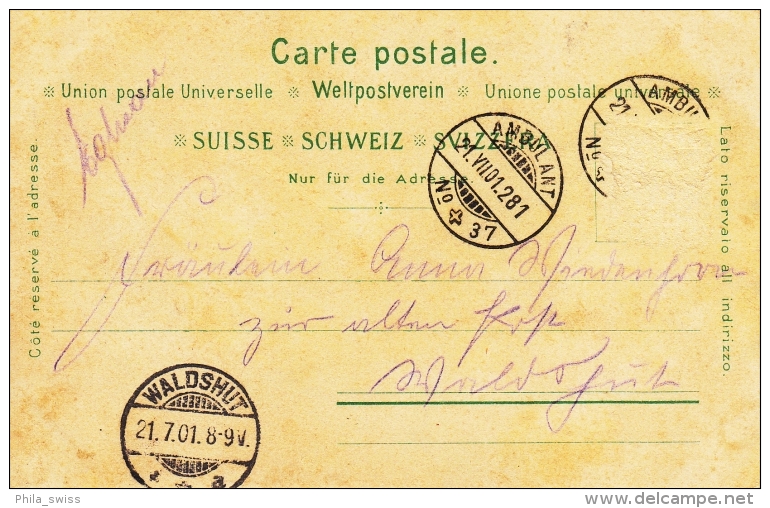 Carte postale.
※ Union postale Universelle ※ Weltpostverein ※ Unione postale universale ※
※ SUISSE ※ SCHWEIZ ※ SVIZZERA
Nur für die Adresse.
Côté réservé à l'adresse.
Lato riservato all indirizzo.
AMBULANT
21.VII 01.281
No 37
AMBU
21.
No
Fräulein Anna Wiedenhorn
zur alten Post
Waldshut
WALDSHUT
21.7.01.8-9V.
* * a
Phila_swiss
delcampe.net